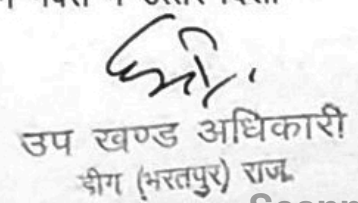 उप खण्ड अधिकारी
डीग (भरतपुर) राज.